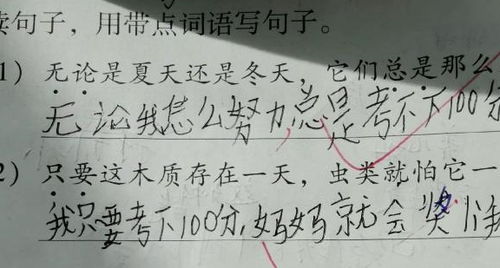 读句子，用带点词语写句子。
1）无论是夏天还是冬天，它们总是那么
无论我怎么努力,总是考不下100分
2）只要这木质存在一天，虫类就怕它一
我只要考下100分,妈妈就会奖